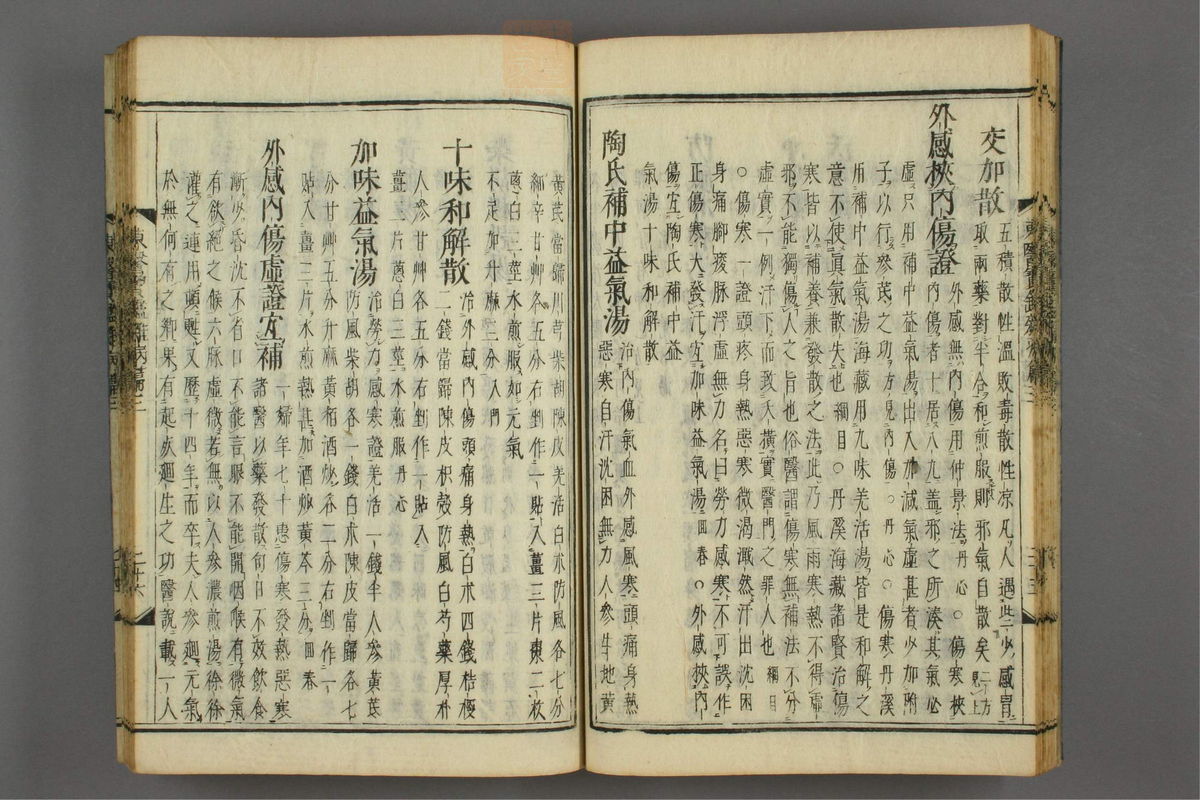 交加散
五積散性溫敗毒散性凉凡人遇些少感冒
取兩藥對半合和煎服則邪氣自散矣二方見上
外感挾內傷證
外感無內傷用仲景法丹心○傷寒挾
內傷者十居八九盖邪之所湊其氣必
虛只用補中益氣湯出入加減氣虛甚者少加附
子以行參芪之功方見內傷○丹心○傷寒丹溪
用補中益氣湯海藏用九味羌活湯皆是和解之
意不使眞氣散失也綱目○丹溪海藏諸賢治傷
寒皆以補養兼發散之法此乃風雨寒熱不得虛
邪不能獨傷人之旨也俗醫謂傷寒無補法不分
虛實一例汗下而致夭橫實醫門之罪人也綱目
○傷寒一證頭疼身熱惡寒微渴濈然汗出沈困
身痛脚痠脉浮虛無力名曰勞力感寒不可誤作
正傷寒大發汗宜加味益氣湯回春○外感挾內
傷宜陶氏補中益
氣湯十味和解散
陶氏補中益氣湯
治內傷氣血外感風寒頭痛身熱
惡寒自汗沈困無力人參生地黃
黃芪當歸川芎柴胡陳皮羌活白朮防風各七分
細辛甘艸各五分右剉作一貼入薑三片棗二枚
葱白二莖水煎服如元氣
不足加升麻三分入門
十味和解散
治外感內傷頭痛身熱白朮四錢桔梗
二錢當歸陳皮枳殼防風白芍藥厚朴
人參甘艸各五分右剉作一貼入
薑五片葱白三莖水煎服丹心
加味益氣湯
治勞力感寒證羌活一錢半人參黃芪
防風柴胡各一錢白朮陳皮當歸各七
分甘艸五分升麻黃栢酒炒各二分右剉作一
貼入薑三片水煎熱甚加酒炒黃芩三分回春
外感內傷虛證宜補
一婦年七十患傷寒發熱惡寒
諸醫以藥發散旬日不效飲食
漸少昏沈不省口不能言眼不能開咽喉有微氣
有欲絕之候六脉虛微若無以人參濃煎湯徐徐
灌之連用頭甦又歷十四年而卒夫人參廻元氣
於無何有之鄕果有起疾廻生之功醫說載一人